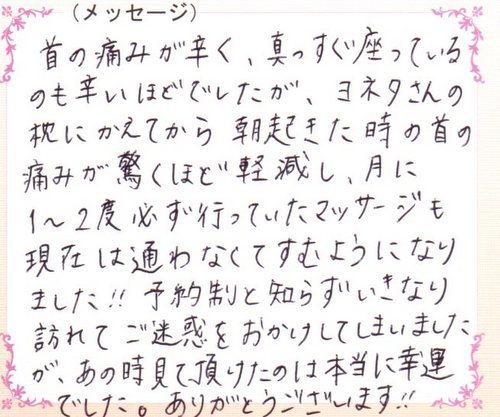 （メッセージ）
首の痛みが辛く、真っすぐ座っている
のも辛いほどでしたが、ヨネタさんの
枕にかえてから朝起きた時の首の
痛みが驚くほど軽減し、月に
1〜2度必ず行っていたマッサージも
現在は通わなくてすむようになり
ました!! 予約制と知らずいきなり
訪れてご迷惑をおかけしてしまいました
が、あの時見て頂けたのは本当に幸運
でした。ありがとうございます!!